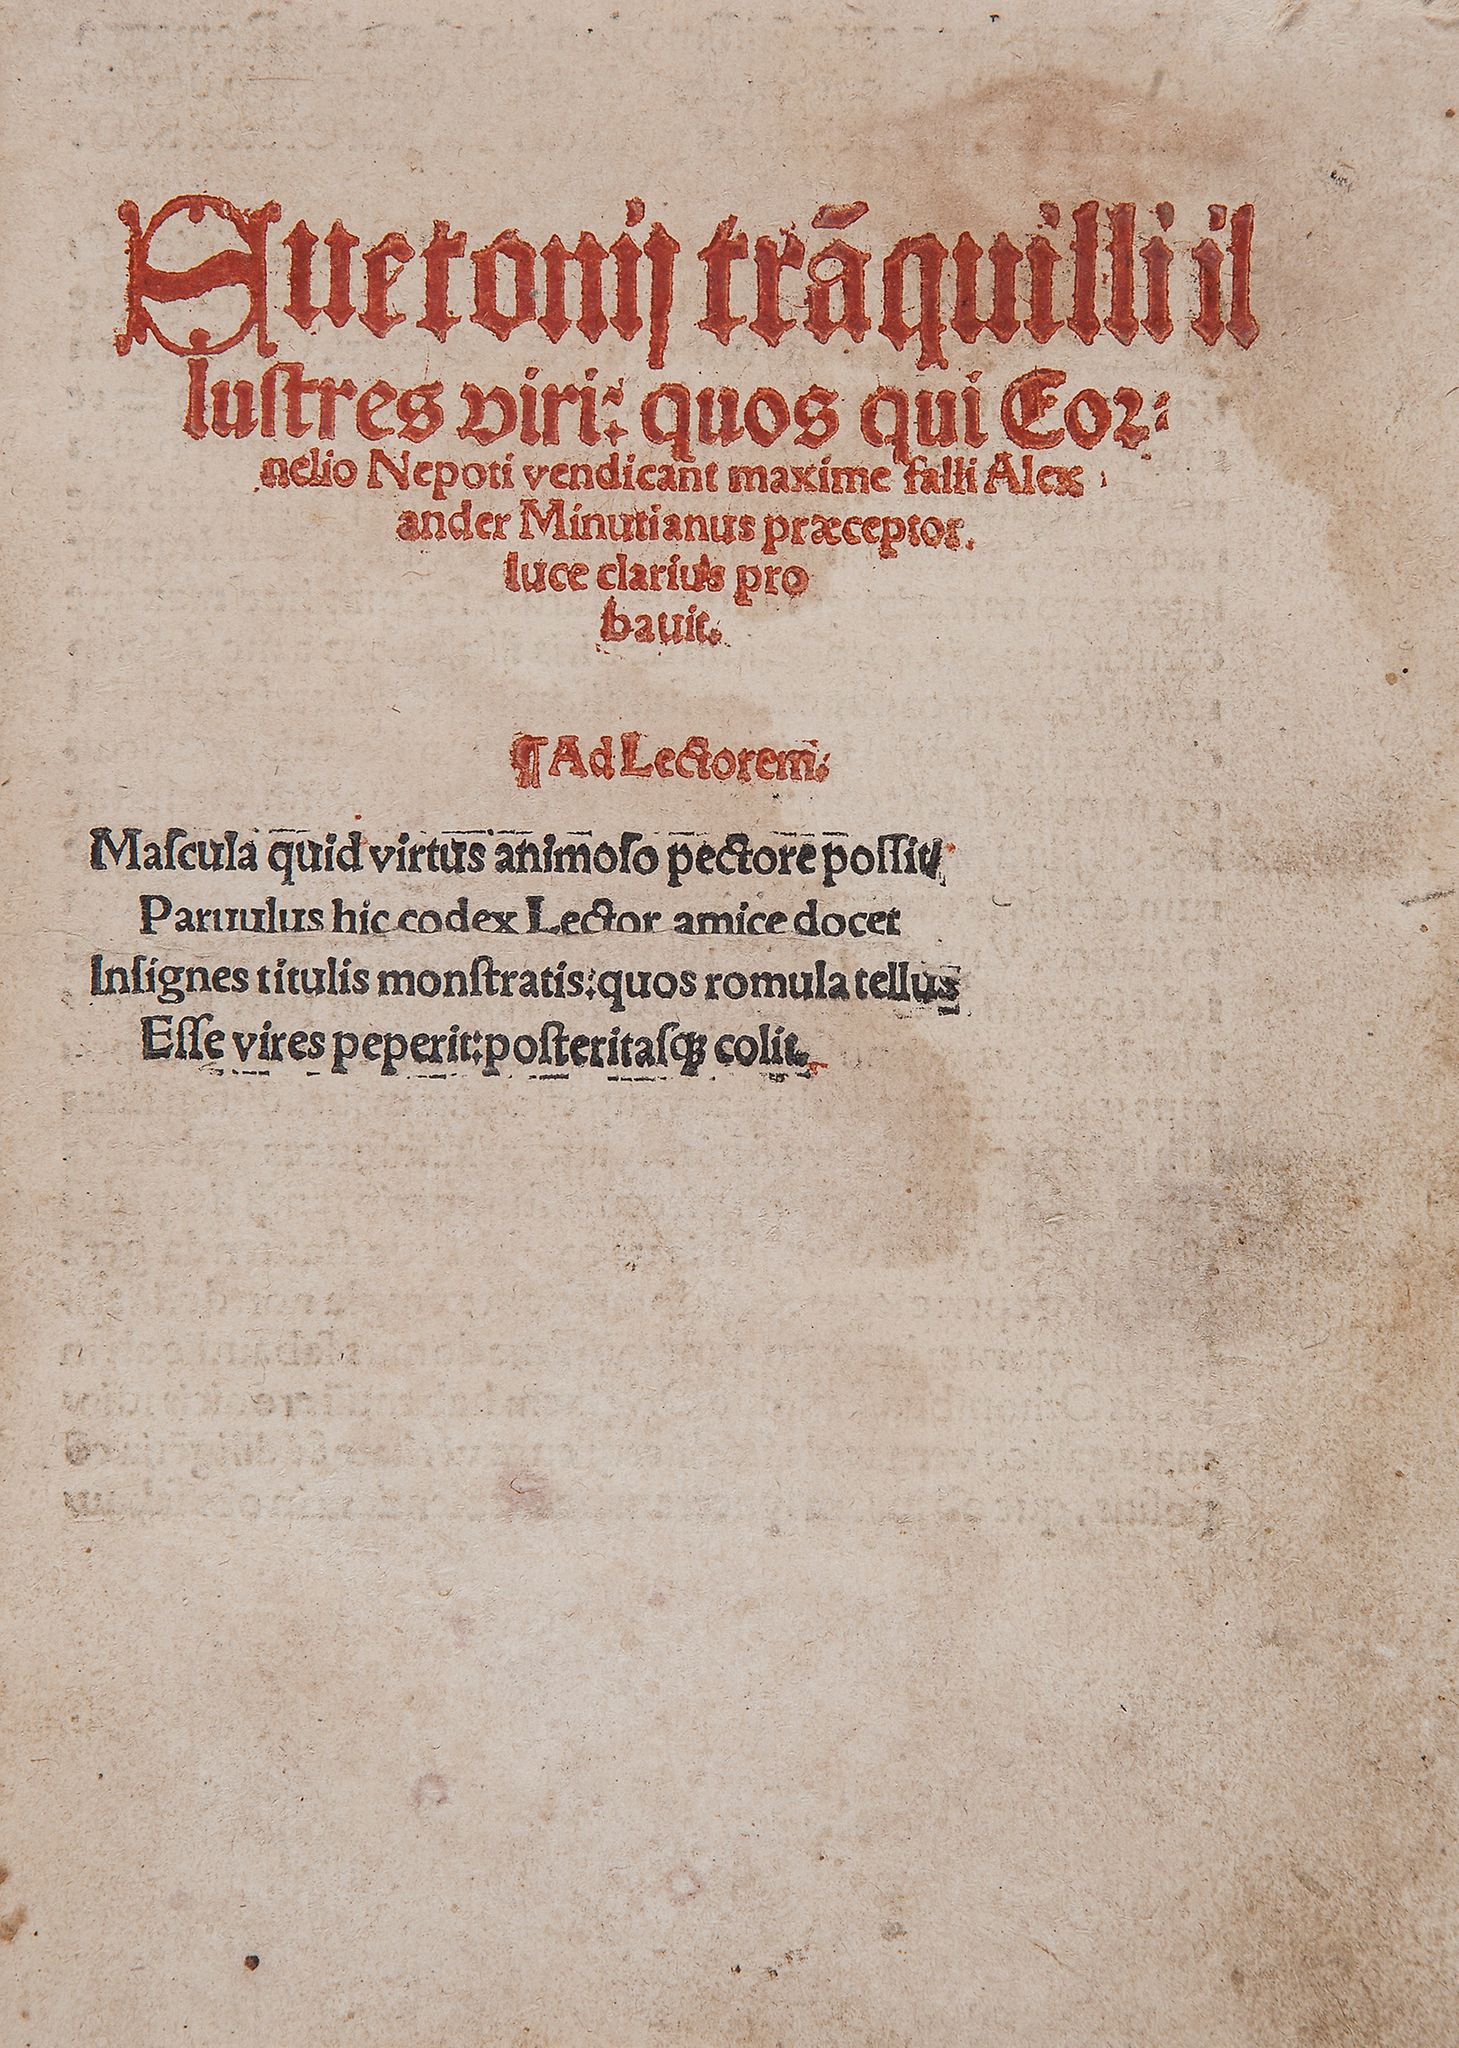 Suetonij trāquilli il
luſtres viri: quos qui Cor-
nelio Nepoti vendicant maxime falli Alex
ander Minutianus præceptor.
luce clarius pro
bauit.
¶ Ad Lectorem.
Maſcula quid virtus animoſo pectore poſſit/
Paruulus hic codex Lector amice docet
Inſignes titulis monſtratis: quos romula tellus
Eſſe vires peperit: poſteritaſꝙ colit.